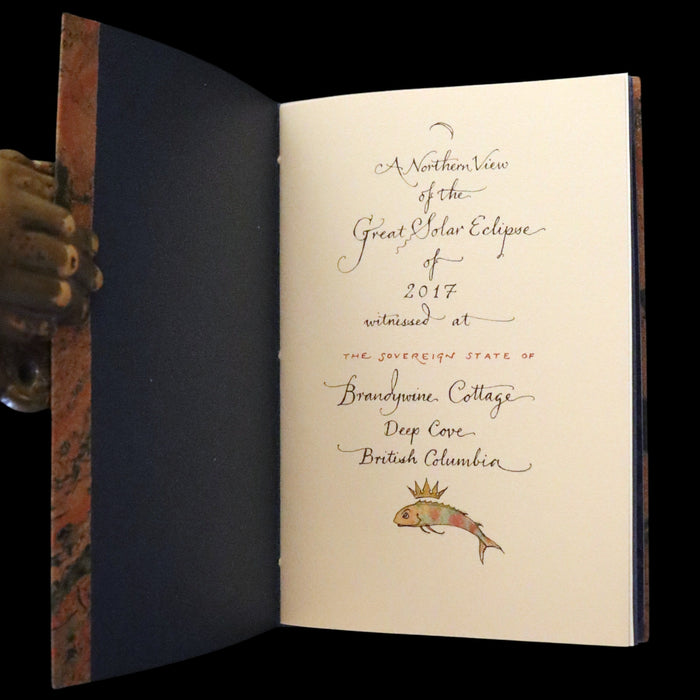 A Northern View
of the
Great Solar Eclipse
of
2017
witnessed at
THE SOVEREIGN STATE OF
Brandywine Cottage
Deep Cove
British Columbia